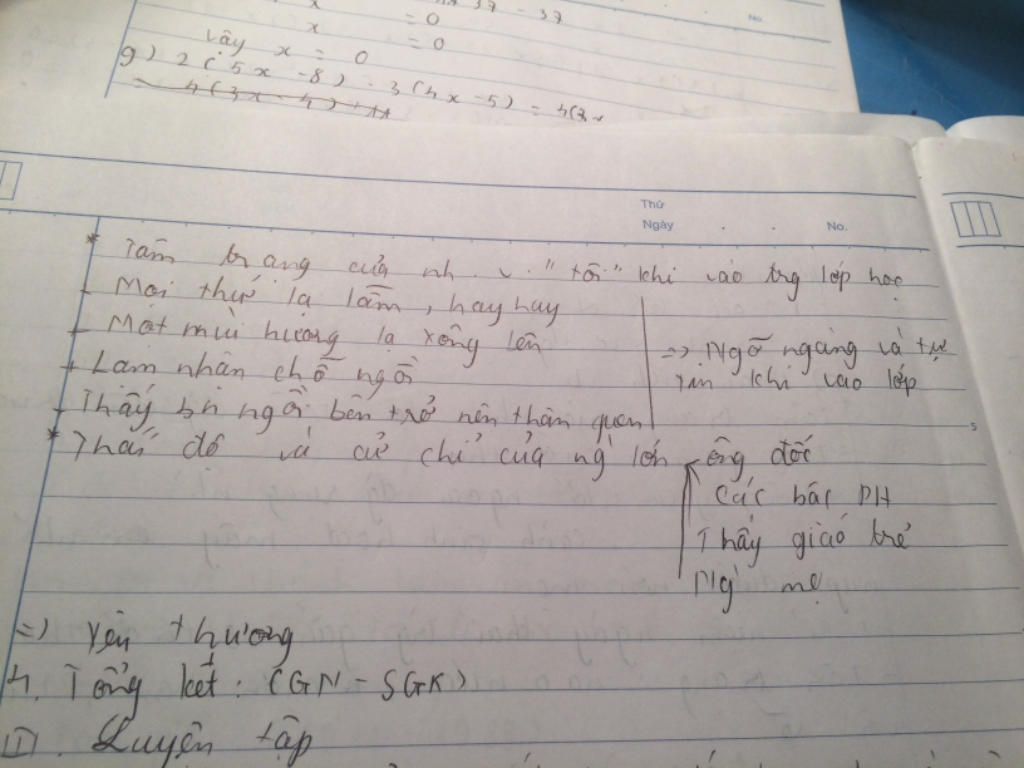 x = 0
vậy x = 0
g) 2(5x - 8) - 3(4x - 5) = 4(3x
= 4(3x - 4) + 11
Thứ
Ngày . . No.
* Tâm trạng của nh.v "tôi" khi vào trg lớp học
- Mọi thứ lạ lắm, hay hay
- Một mùi hương lạ xông lên
+ Lạm nhận chỗ ngồi
- Thấy bn ngồi bên trở nên thân quen
=> Ngỡ ngàng và tự
tin khi vào lớp
5
* Thái độ và cử chỉ của ng lớn
ông đốc
Các bác PH
Thầy giáo trẻ
Ng mẹ
=> Yêu thương
4. Tổng kết: (GN - SGK)
II. Luyện tập